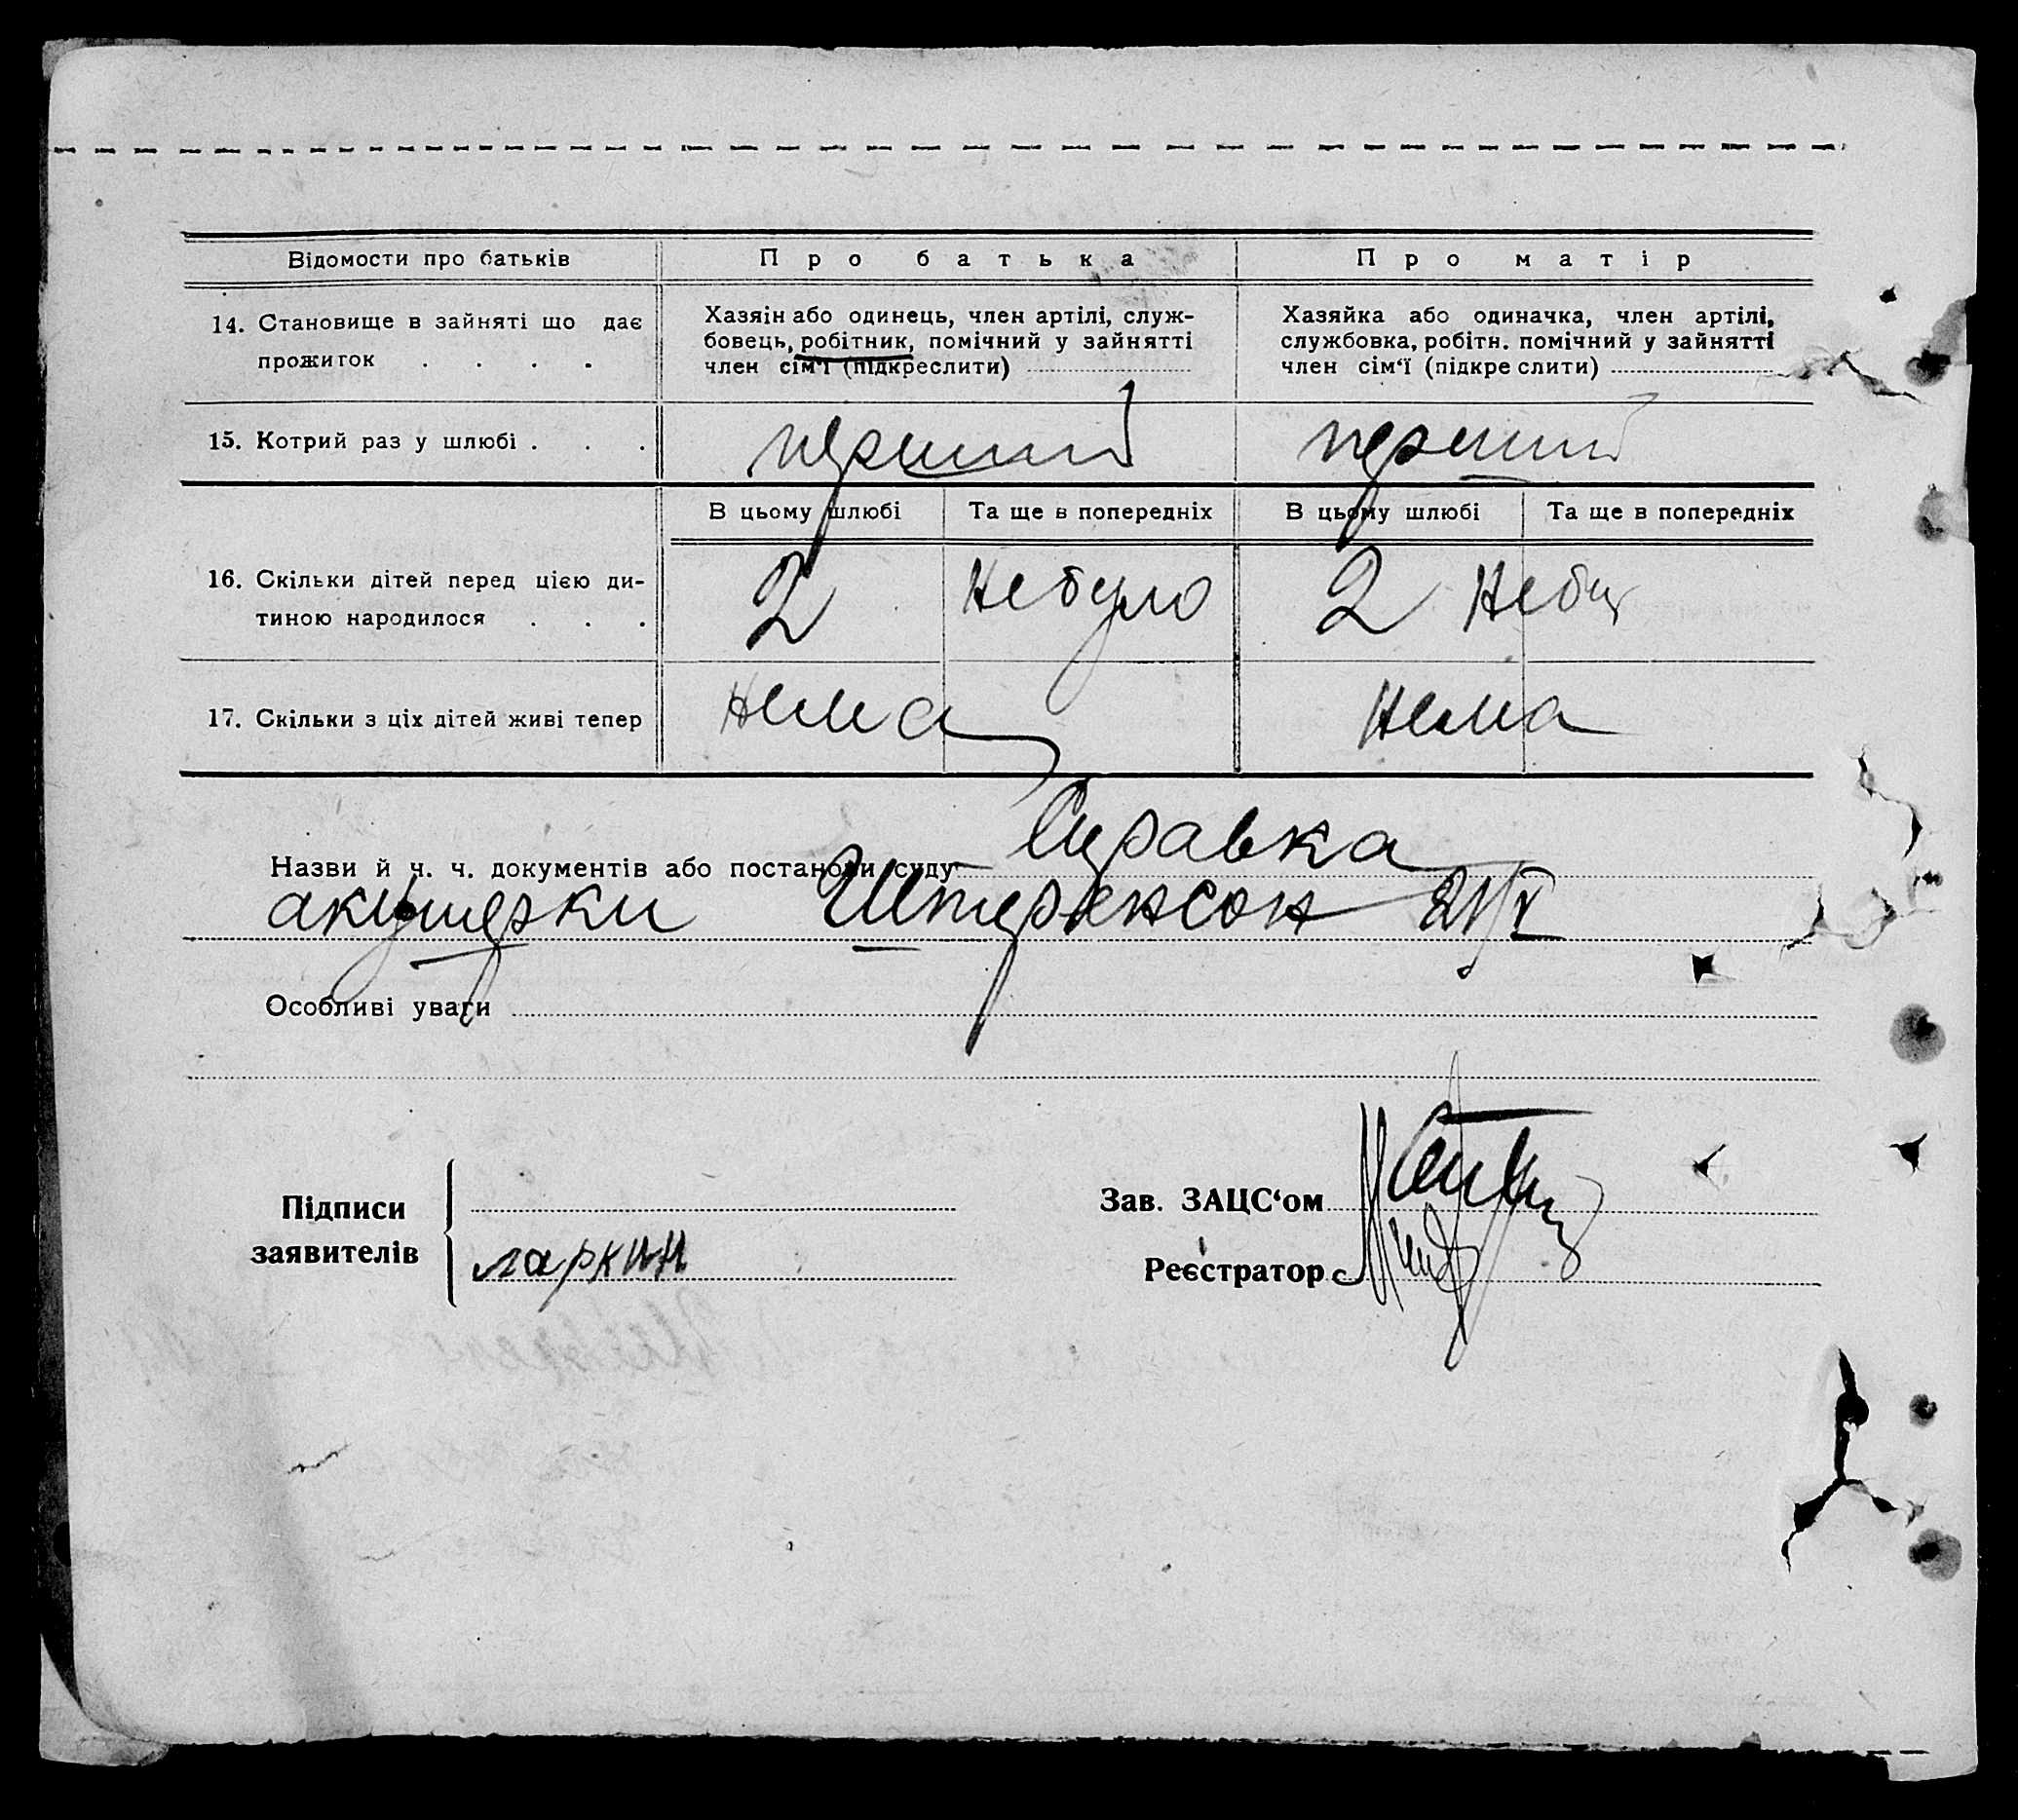 Відомости про батьків
Про батька
Про матір
14. Становище в зайняті що дає
прожиток . . . .
Хазяїн або одинець, член артілі, служ-
бовець, робітник, помічний у зайнятті
член сім'ї (підкреслити)
Хазяйка або одиначка, член артілі,
службовка, робітн. помічний у зайнятті
член сім'ї (підкреслити)
15. Котрий раз у шлюбі . . .
перший
перший
В цьому шлюбі
Та ще в попередніх
В цьому шлюбі
Та ще в попередніх
16. Скільки дітей перед цією ди-
тиною народилося . . .
2
Небуло
2
Небу
17. Скільки з ціх дітей живі тепер
Нема
Нема
Назви й ч. ч. документів або постанови суду Справка
акушерки 21/V
Особливі уваги
Підписи
заявителів
ларкин
Зав. ЗАЦС'ом
Реєстратор